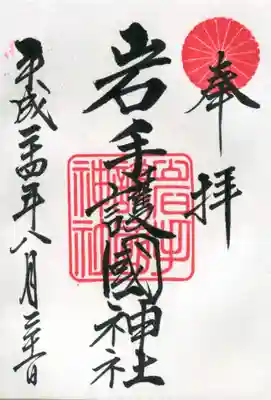 奉拝
岩手護國神社
岩手護國神社
平成二十四年八月二十六日